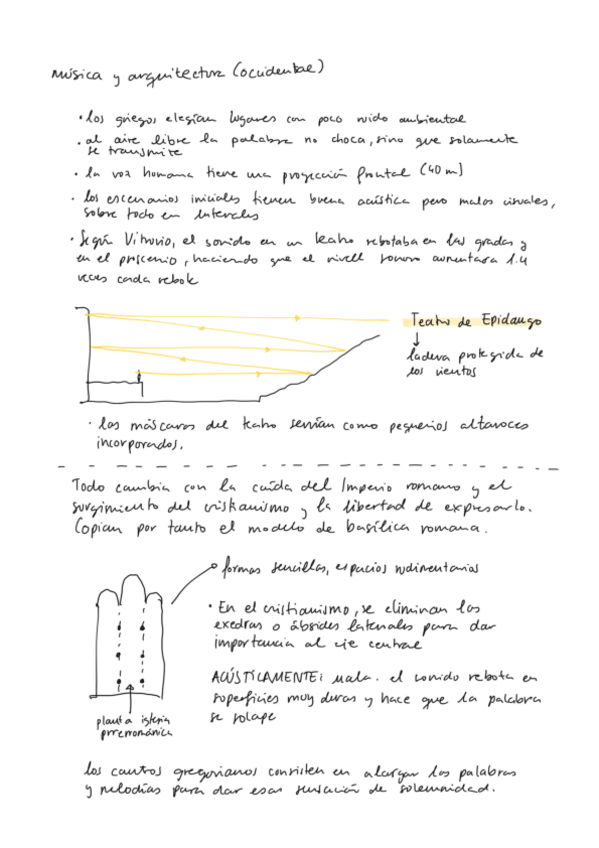 música y arquitectura (occidental)
• los griegos elegían lugares con poco ruido ambiental
• al aire libre la palabra no choca, sino que solamente
se transmite
• la voz humana tiene una proyección frontal (40 m)
• los escenarios iniciales tienen buena acústica pero malas visuales,
sobre todo en laterales
• Según Vitruvio, el sonido en un teatro rebotaba en las gradas y
en el proscenio, haciendo que el nivell sonoro aumentara 1.4
veces cada rebote
Teatro de Epidauro
↓
ladera protegida de
los vientos
• las máscaras del teatro servían como pequeños altavoces
incorporados.
Todo cambia con la caída del Imperio romano y el
surgimiento del cristianismo y la libertad de expresarlo.
Copian por tanto el modelo de basílica romana.
formas sencillas, espacios rudimentarios
• En el cristianismo, se eliminan las
exedras o ábsides laterales para dar
importancia al eje central
ACÚSTICAMENTE: mala. el sonido rebota en
superficies muy duras y hace que la palabra
se solape
planta iglesia
prerrománica
los cantos gregorianos consisten en alargar las palabras
y melodías para dar esar sensación de solemnidad.